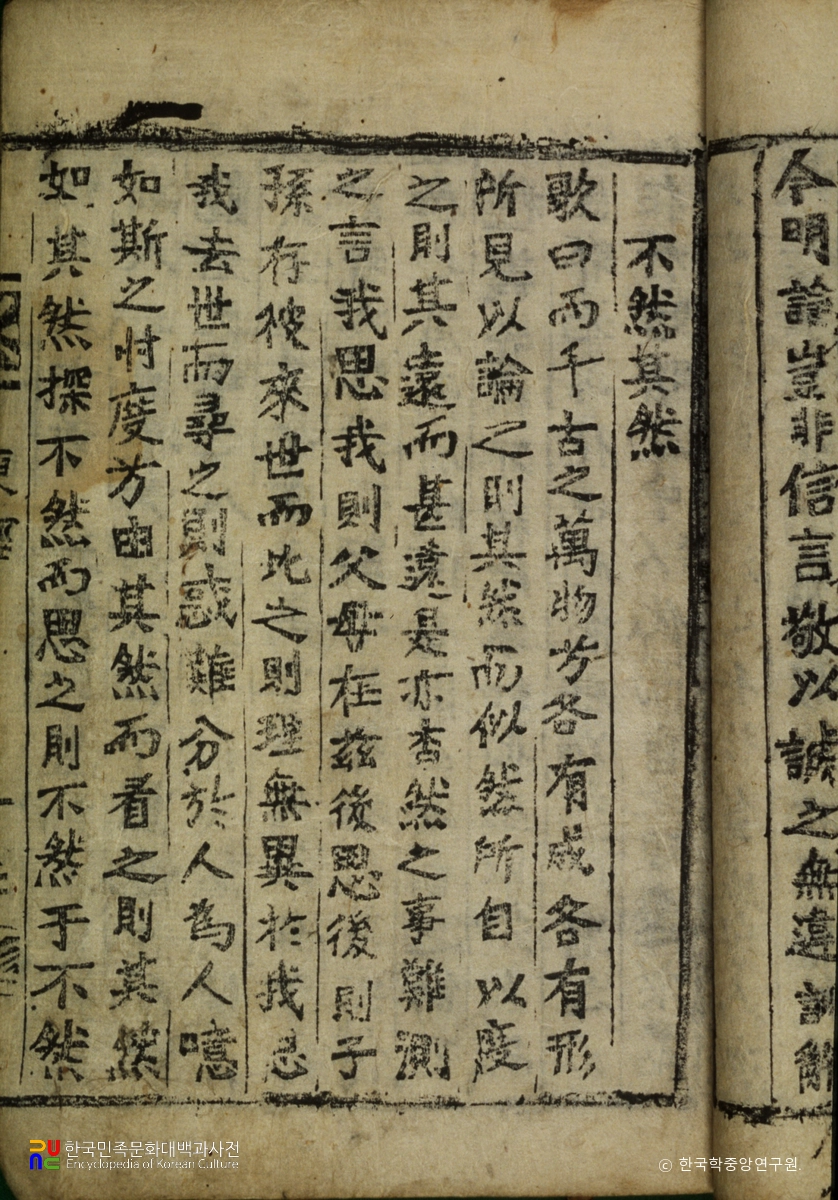 今明諭豈非信言敬以誠之無違訓辭
不然其然
歌曰而千古之萬物兮各有成各有形
所見以論之則其然而似然所自以度
之則其遠而甚遠是亦杳然之事難測
之言我思我則父母在玆後思後則子
孫存彼來世而比之則理無異於我思
我去世而尋之則惑難分於人為人噫
如斯之忖度兮由其然而看之則其然
如其然探不然而思之則不然于不然
한국민족문화대백과사전
Encyclopedia of Korean Culture
© 한국학중앙연구원.